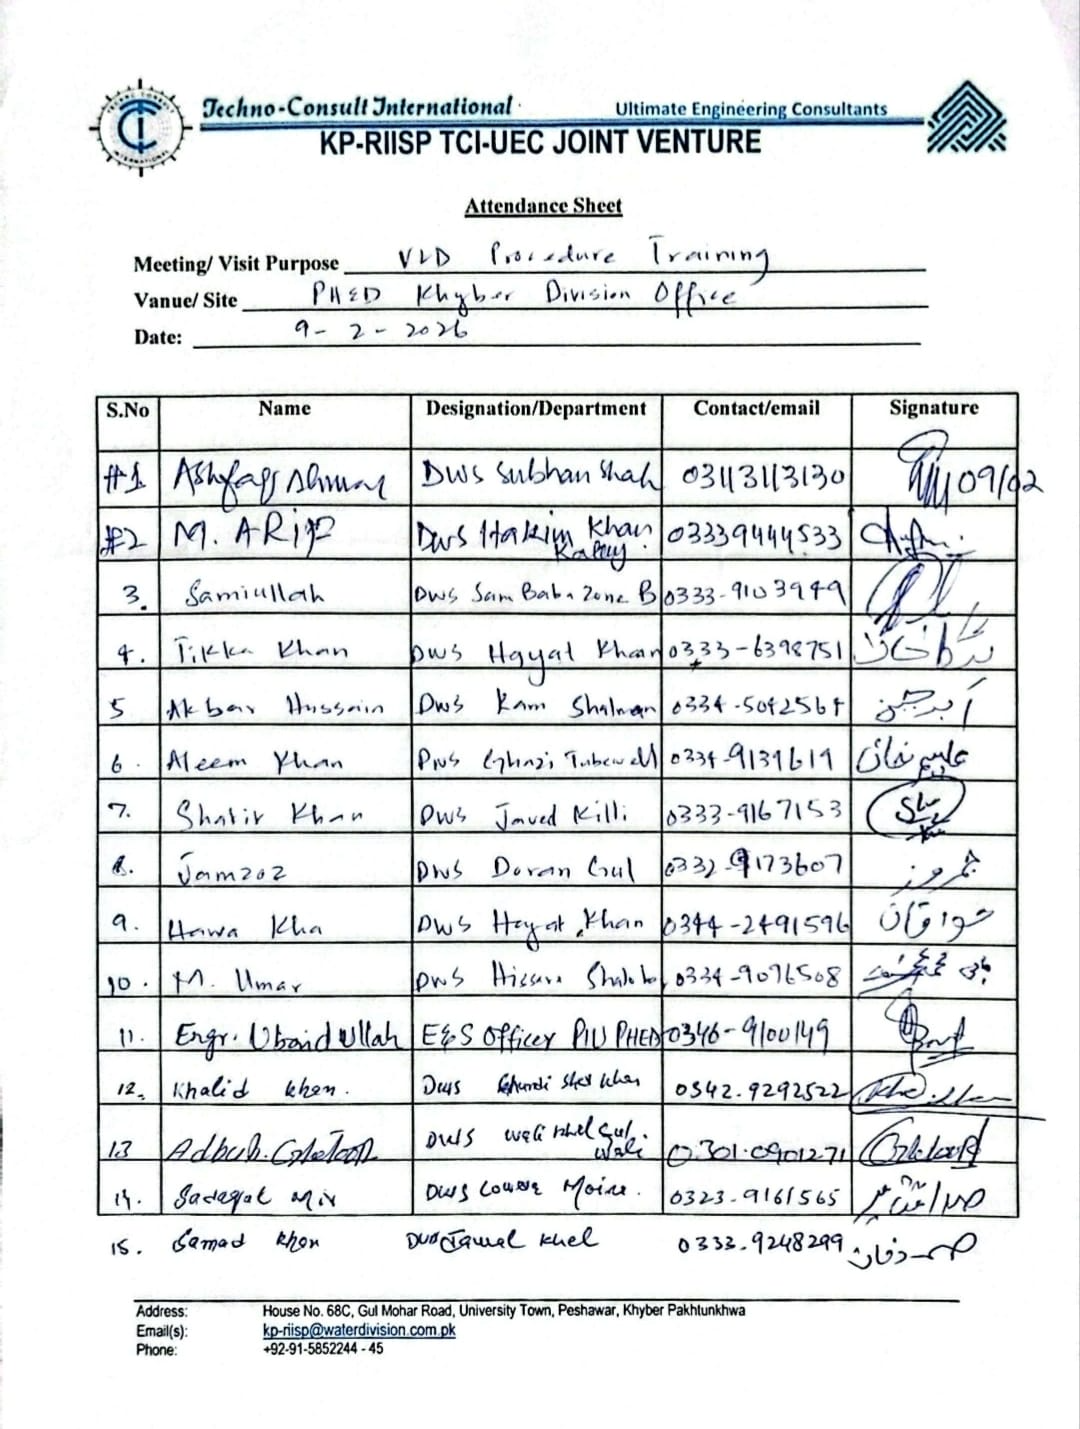 Techno-Consult International Ultimate Engineering Consultants
KP-RIISP TCI-UEC JOINT VENTURE
Attendance Sheet
Meeting/ Visit Purpose VLD Procedure Training
Vanue/ Site PHED Khyber Division Office
Date: 9-2-2026
S.No Name Designation/Department Contact/email Signature
#1 Ashfaq Ahmad DWS Subhan Shah 03113113130 09/02
#2 M. ARif DWS Hakim Khan Kalay 03339444533
3. Samiullah DWS Sam Baba Zone B 0333-9103949
4. Tikka Khan DWS Hayat Khan 0333-6398751
5 Akbar Hussain DWS Kam Shalman 0334-5042564 
6. Aleem Khan DWS Tubewell 0334-9139619 علیم خان
7. Khan DWS Javed Killi 0333-9167153
8. Jamroz DWS Doran Gul 0332-9173607 جمروز
9. Hawa Kha DWS Hayat Khan 0344-2491596
10. M. Umar DWS 0334-9076508
11. Engr. Ubaid Ullah E&S Officer PIU PHED 0346-9100149
12. Khalid khan. DWS Sher khan 0342.9292522
13 DWS Wali khel Gul Wali 0301.0901271
14. Sadaqat Mir DWS 0323-9161565
15. Samad khan DWS khel 0333.9248299 صمد خان
Address: House No. 68C, Gul Mohar Road, University Town, Peshawar, Khyber Pakhtunkhwa
Email(s): kp-riisp@waterdivision.com.pk
Phone: +92-91-5852244 - 45